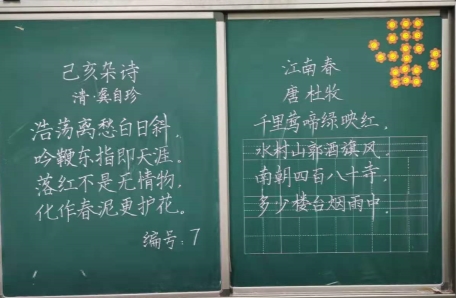 己亥杂诗
清·龚自珍
浩荡离愁白日斜.
吟鞭东指即天涯.
落红不是无情物.
化作春泥更护花.
编号:7
江南春
唐 杜牧
千里莺啼绿映红.
水村山郭酒旗风.
南朝四百八十寺.
多少楼台烟雨中.